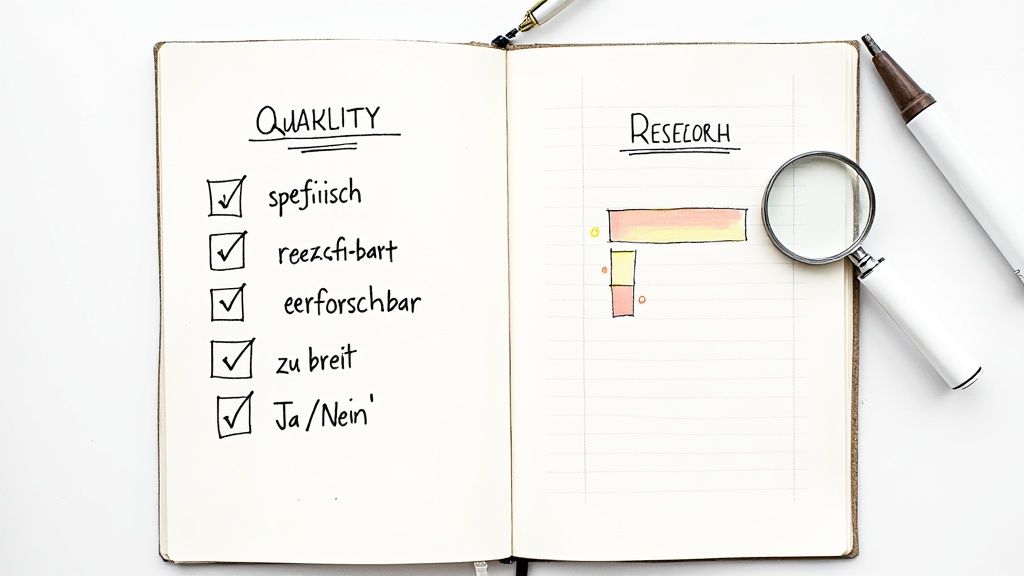 QUAKLITY
spefiiisch
reezcfi-bart
eerforschbar
zu breit
Ja/Nein'
RESECORH